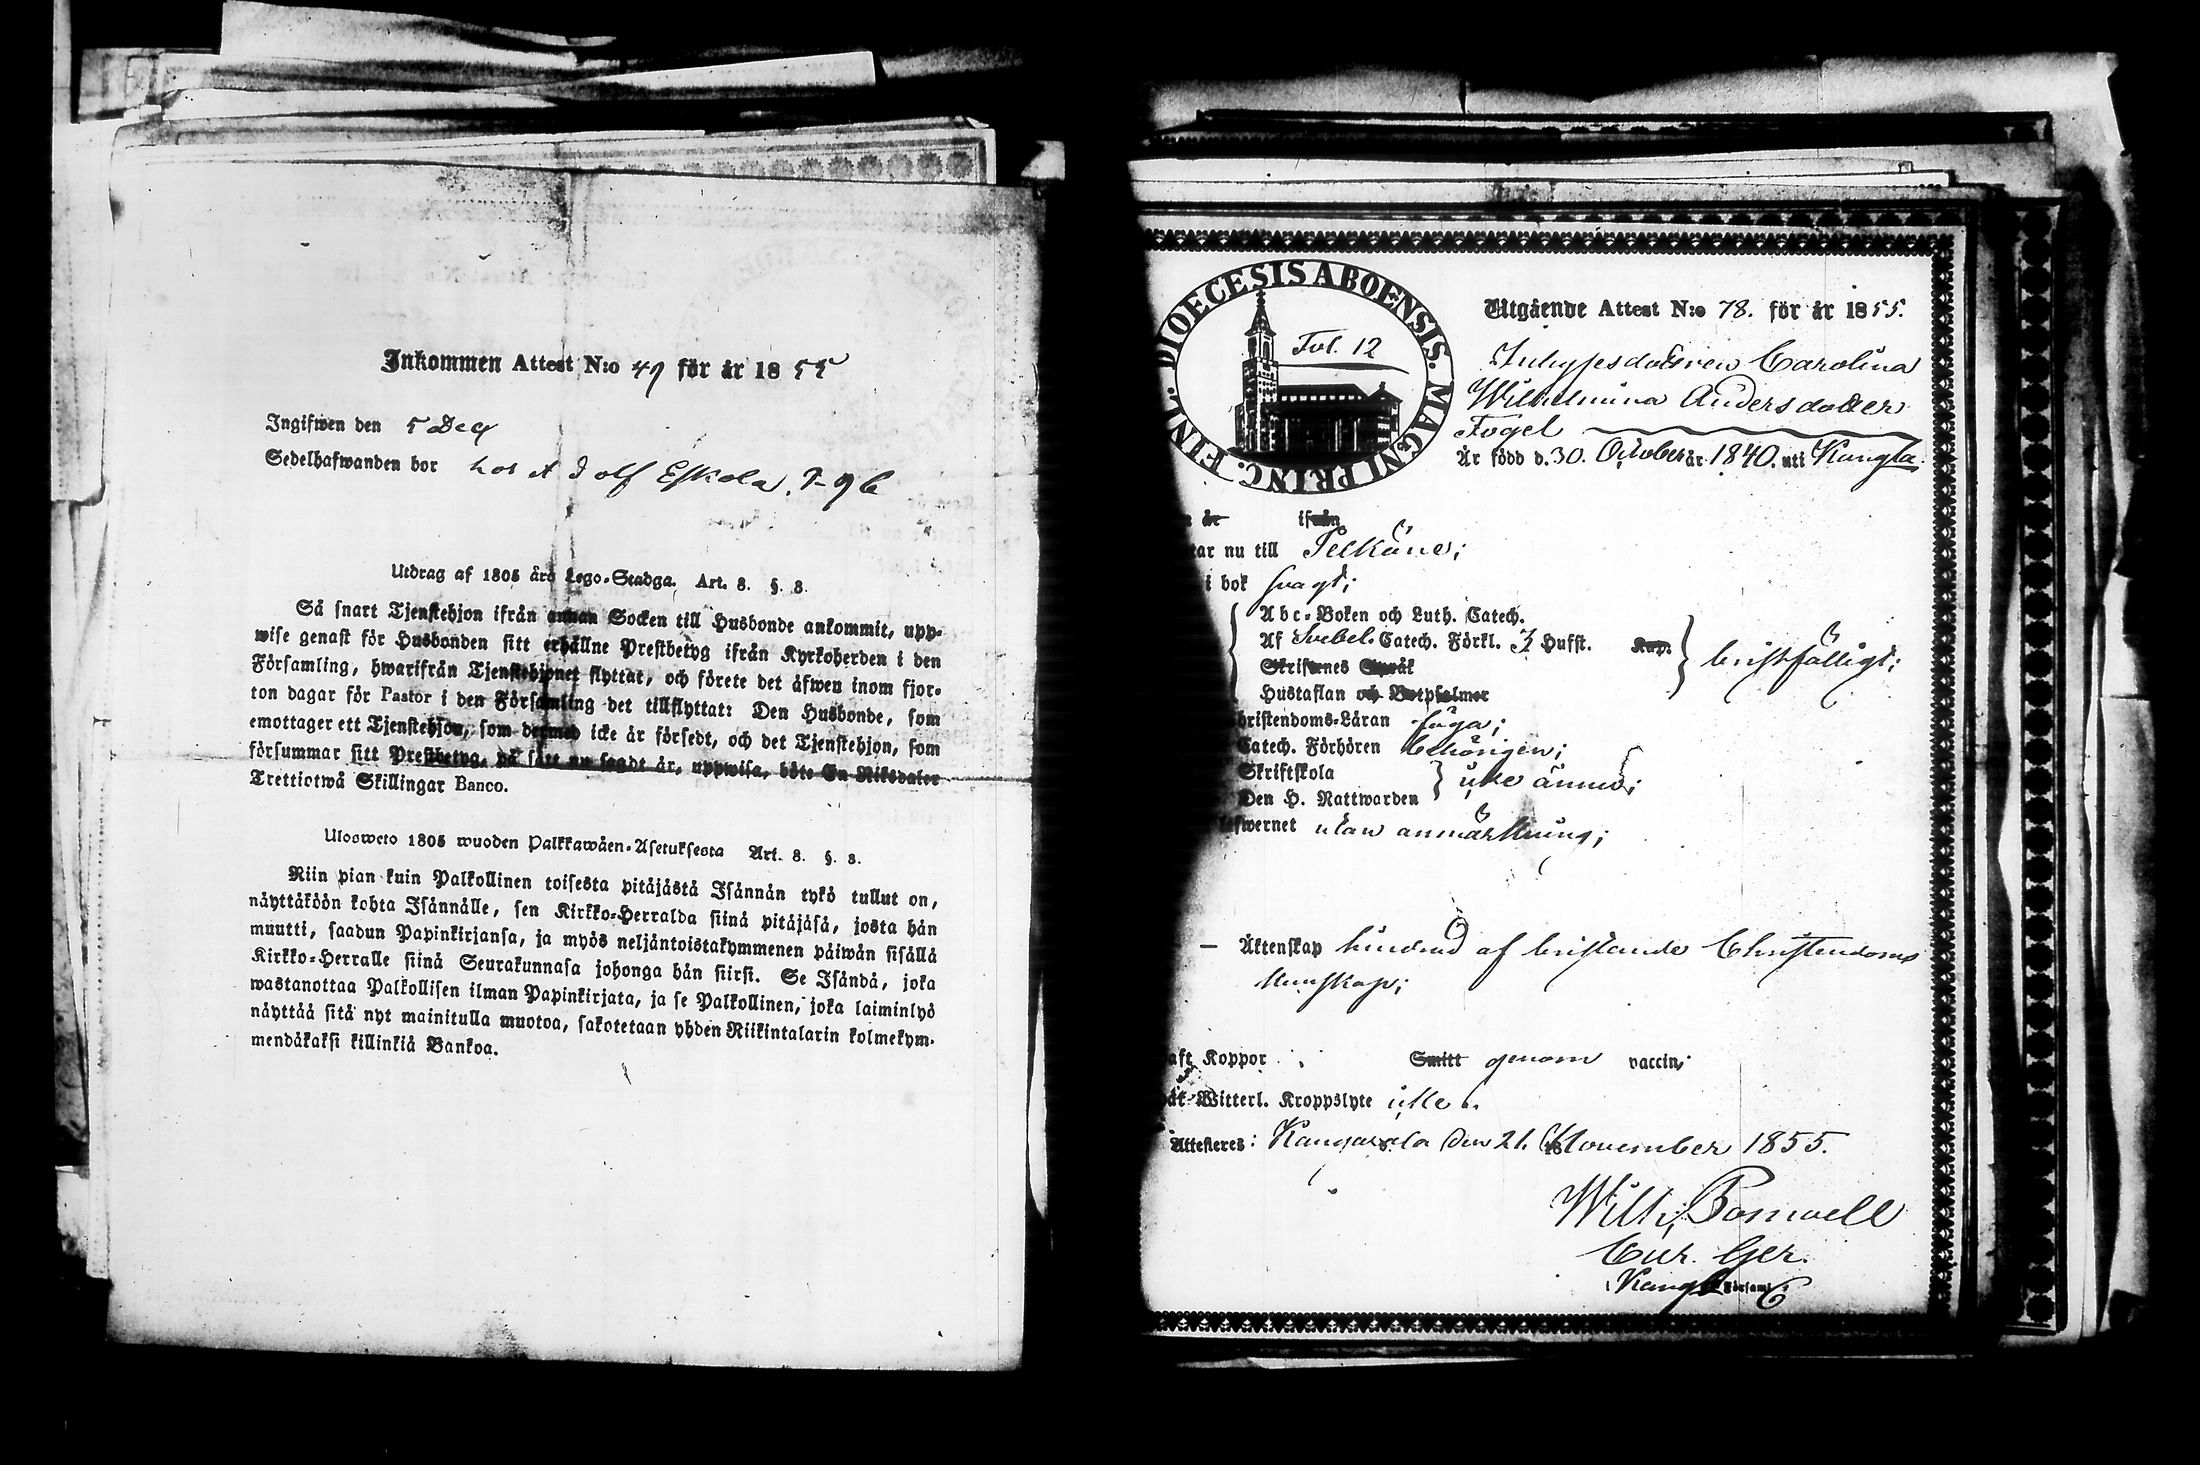 Inkommen Attest N:o 49 för år 1855
Ingifwen den 5 Dec
Sedelhafwanden bor hos Adolf Eskola
Utdrag af 1805 års Lego-Stadga. Art. 8. §. 3.
Så snart Tjenstehjon ifrån annan Socken till Husbonde ankommit, upp-
wise genast för Husbonden sitt erhållne Prestbetyg ifrån Kyrkoherden i den
Församling, hwarifrån Tjenstehjonet flyttat, och förete det äfwen inom fjor-
ton dagar för Pastor i den Församling det tillflyttat: Den Husbonde, som
emottager ett Tjenstehjon, som dermed icke är försedt, och det Tjenstehjon, som
försummar sitt Prestbetyg, på sätt nu sagdt är, uppwisa, böte En Riksdaler
Trettiotwå Skillingar Banco.
Ulosweto 1805 wuoden Palkkawäen-Asetuksesta Art. 8. §. 3.
Niin pian kuin Palkollinen toisesta pitäjästä Isännän tykö tullut on,
näyttäköön kohta Isännälle, sen Kirkko-Herralda siinä pitäjäsä, josta hän
muutti, saadun Papinkirjansa, ja myös neljäntoistakymmenen päiwän sisällä
Kirkko-Herralle siinä Seurakunnasa johonga hän siirsi. Se Isändä, joka
wastanottaa Palkollisen ilman Papinkirjata, ja se Palkollinen, joka laiminlyö
näyttää sitä nyt mainitulla muotoa, sakotetaan yhden Riikintalarin kolmekym-
mendäkaksi killinkiä Bankoa.
DIOECESIS ABOENSIS. MAGNI PRINC. FINL.
Fol. 12
Utgående Attest N:o 78. för år 1855.
Inhysesdottren Carolina
Wilhelmina Andersdotter
Fogel
Är född d. 30. October år 1840. uti Kangla.
n år ifrån
tar nu till Pelkäne;
i bok svagt;
Abc-Boken och Luth. Catech.
Af Svebel. Catech. Förkl. 3 Hufst. Kap. bristfälligt;
Skriftenes Språk
Hustaflan och Botpsalmer
Christendoms-Läran föga;
Catech. Förhören behörigen;
Skriftskola
Den H. Nattwarden icke ännu;
lefwernet utan anmärkning;
– Äktenskap hindrad af bristande Christendoms
kunskap;
aft Koppor ; Smitt genom vaccin;
Witterl. Kroppslyte icke.
Attesteres: Kangasala den 21. November 1855.
Wilh. Bonwell
Cur. Ger.
Kangla Församl.